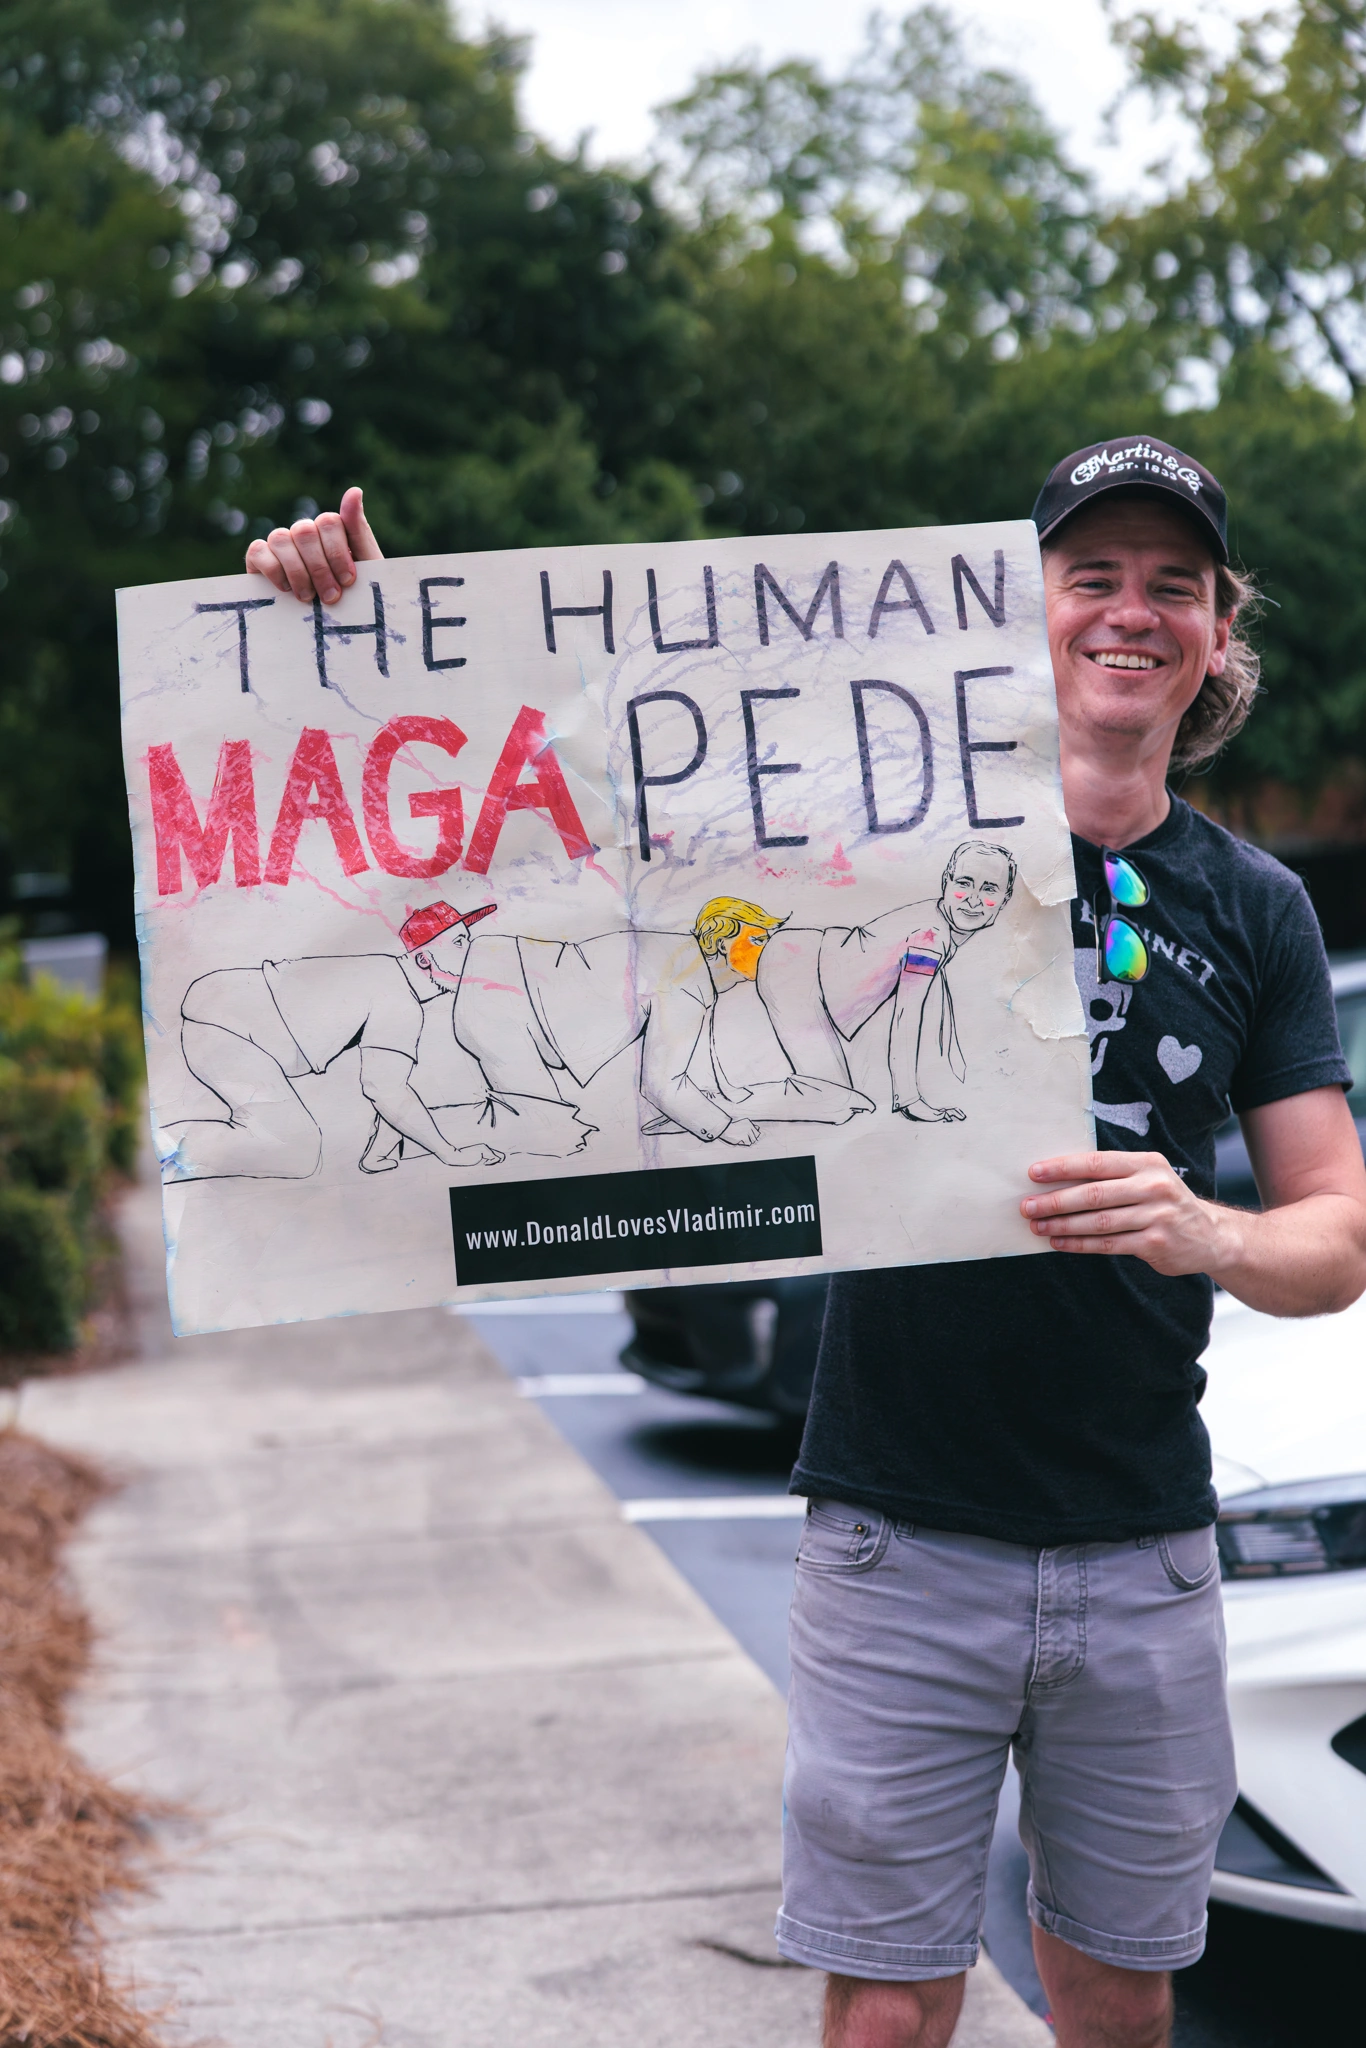 THE HUMAN
MAGAPEDE
www.DonaldLovesVladimir.com
CF Martin & Co.
EST. 1833